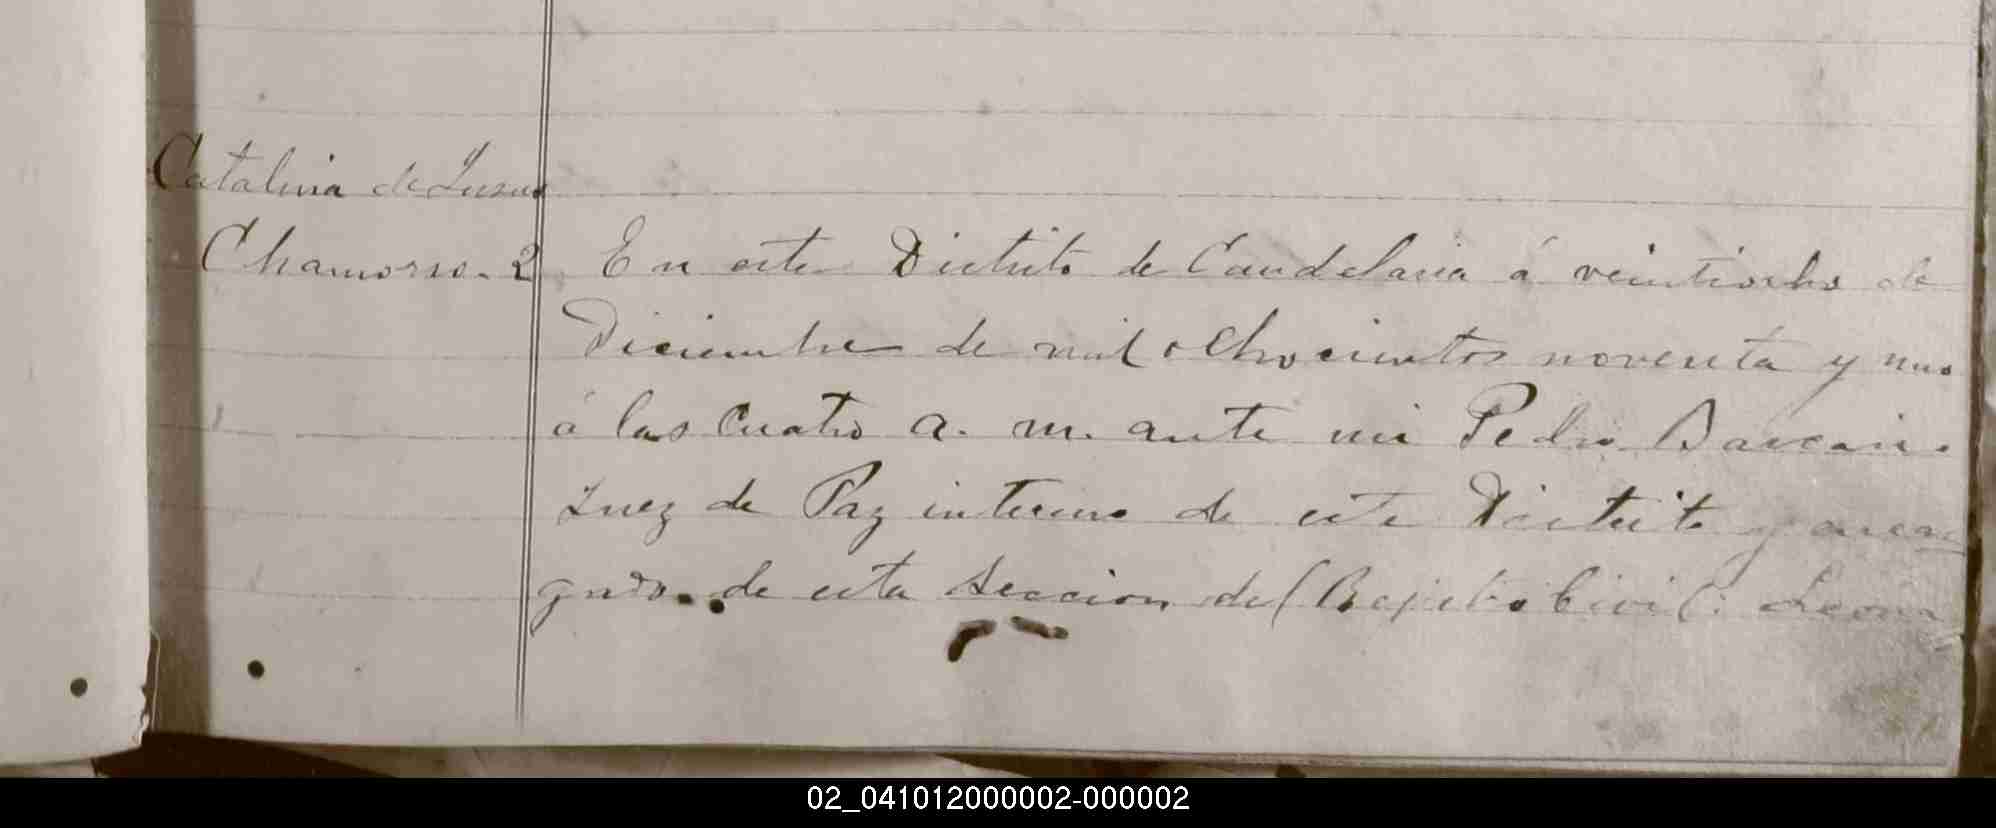 Catalina de Jesus
Chamorro. 2
En este Distrito de Candelaria á veintiocho de
Diciembre de mil ochocientos noventa y nue
á las cuatro a. m. ante mi Pedro
Juez de Paz interino de este Distrito y encar
gado de esta Seccion del Rejistro Civil:
02_041012000002-000002